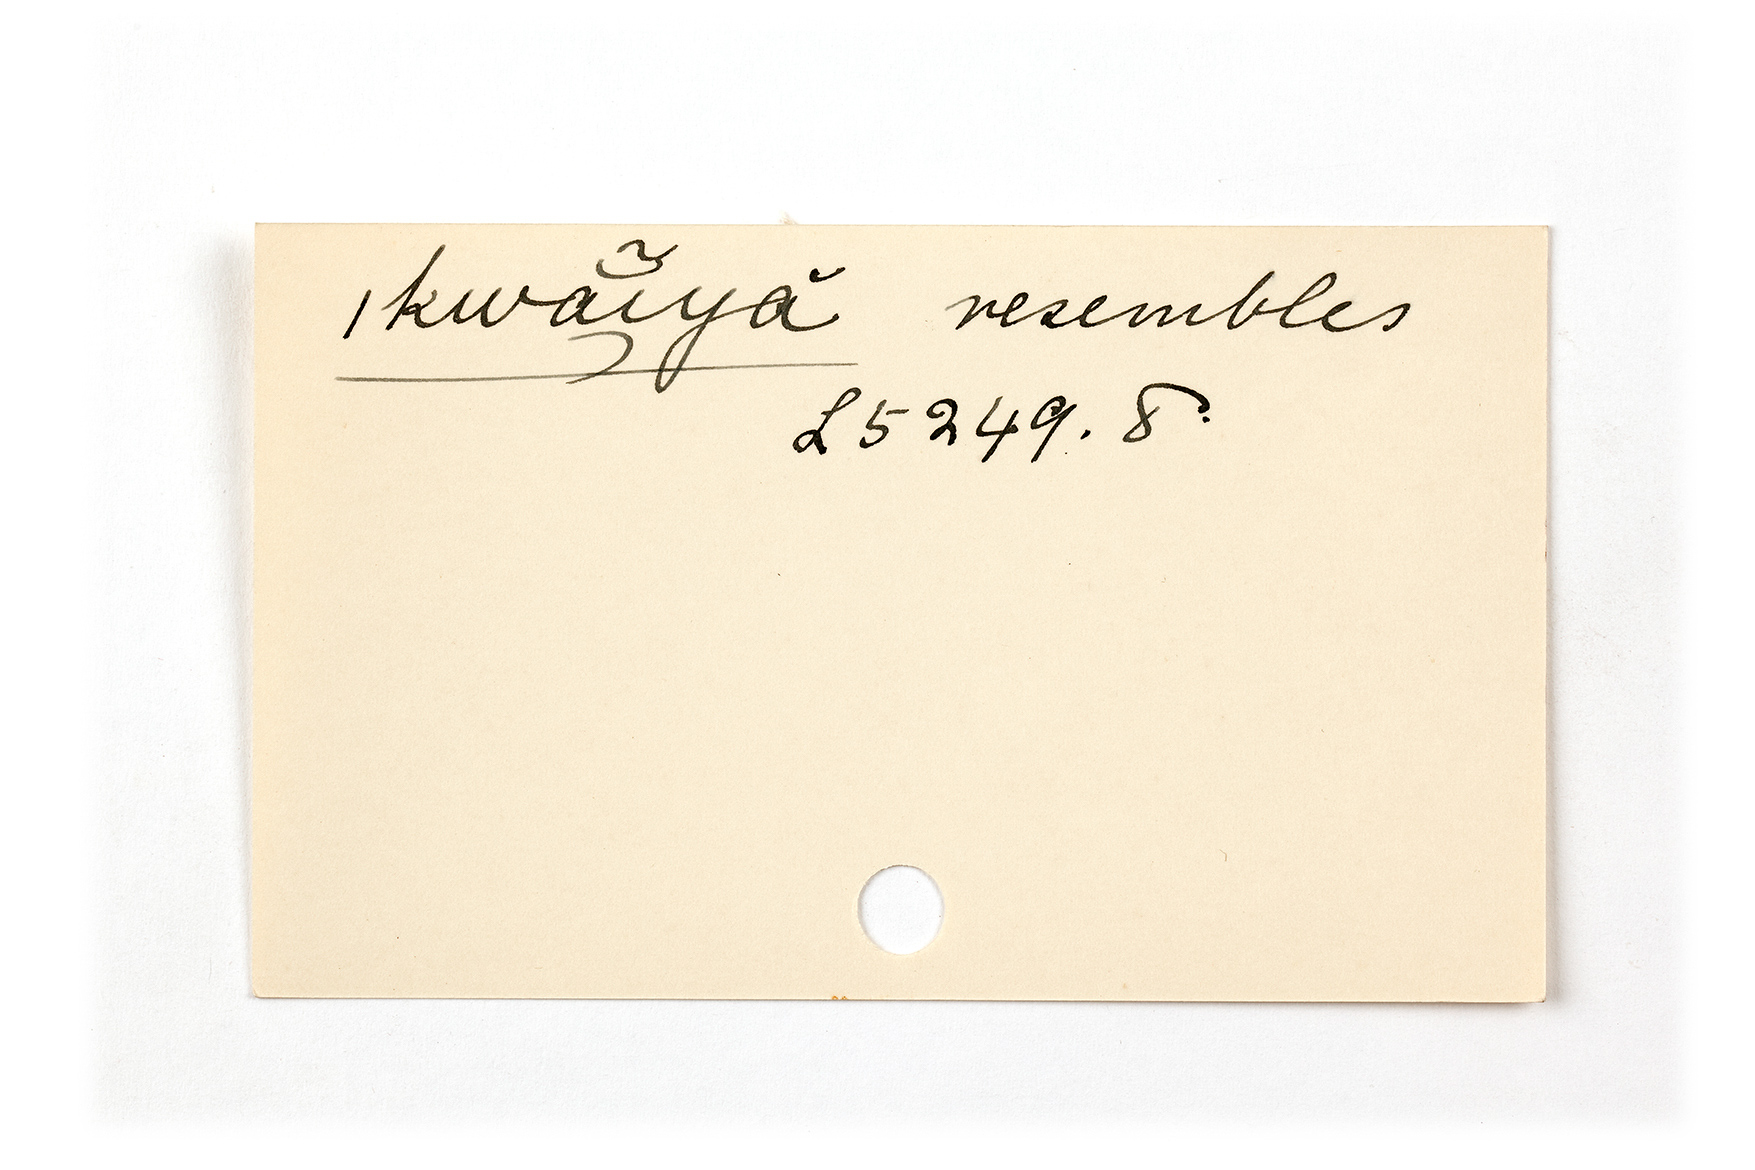 ıkwä̆̃ıyă resembles
L5249.8.